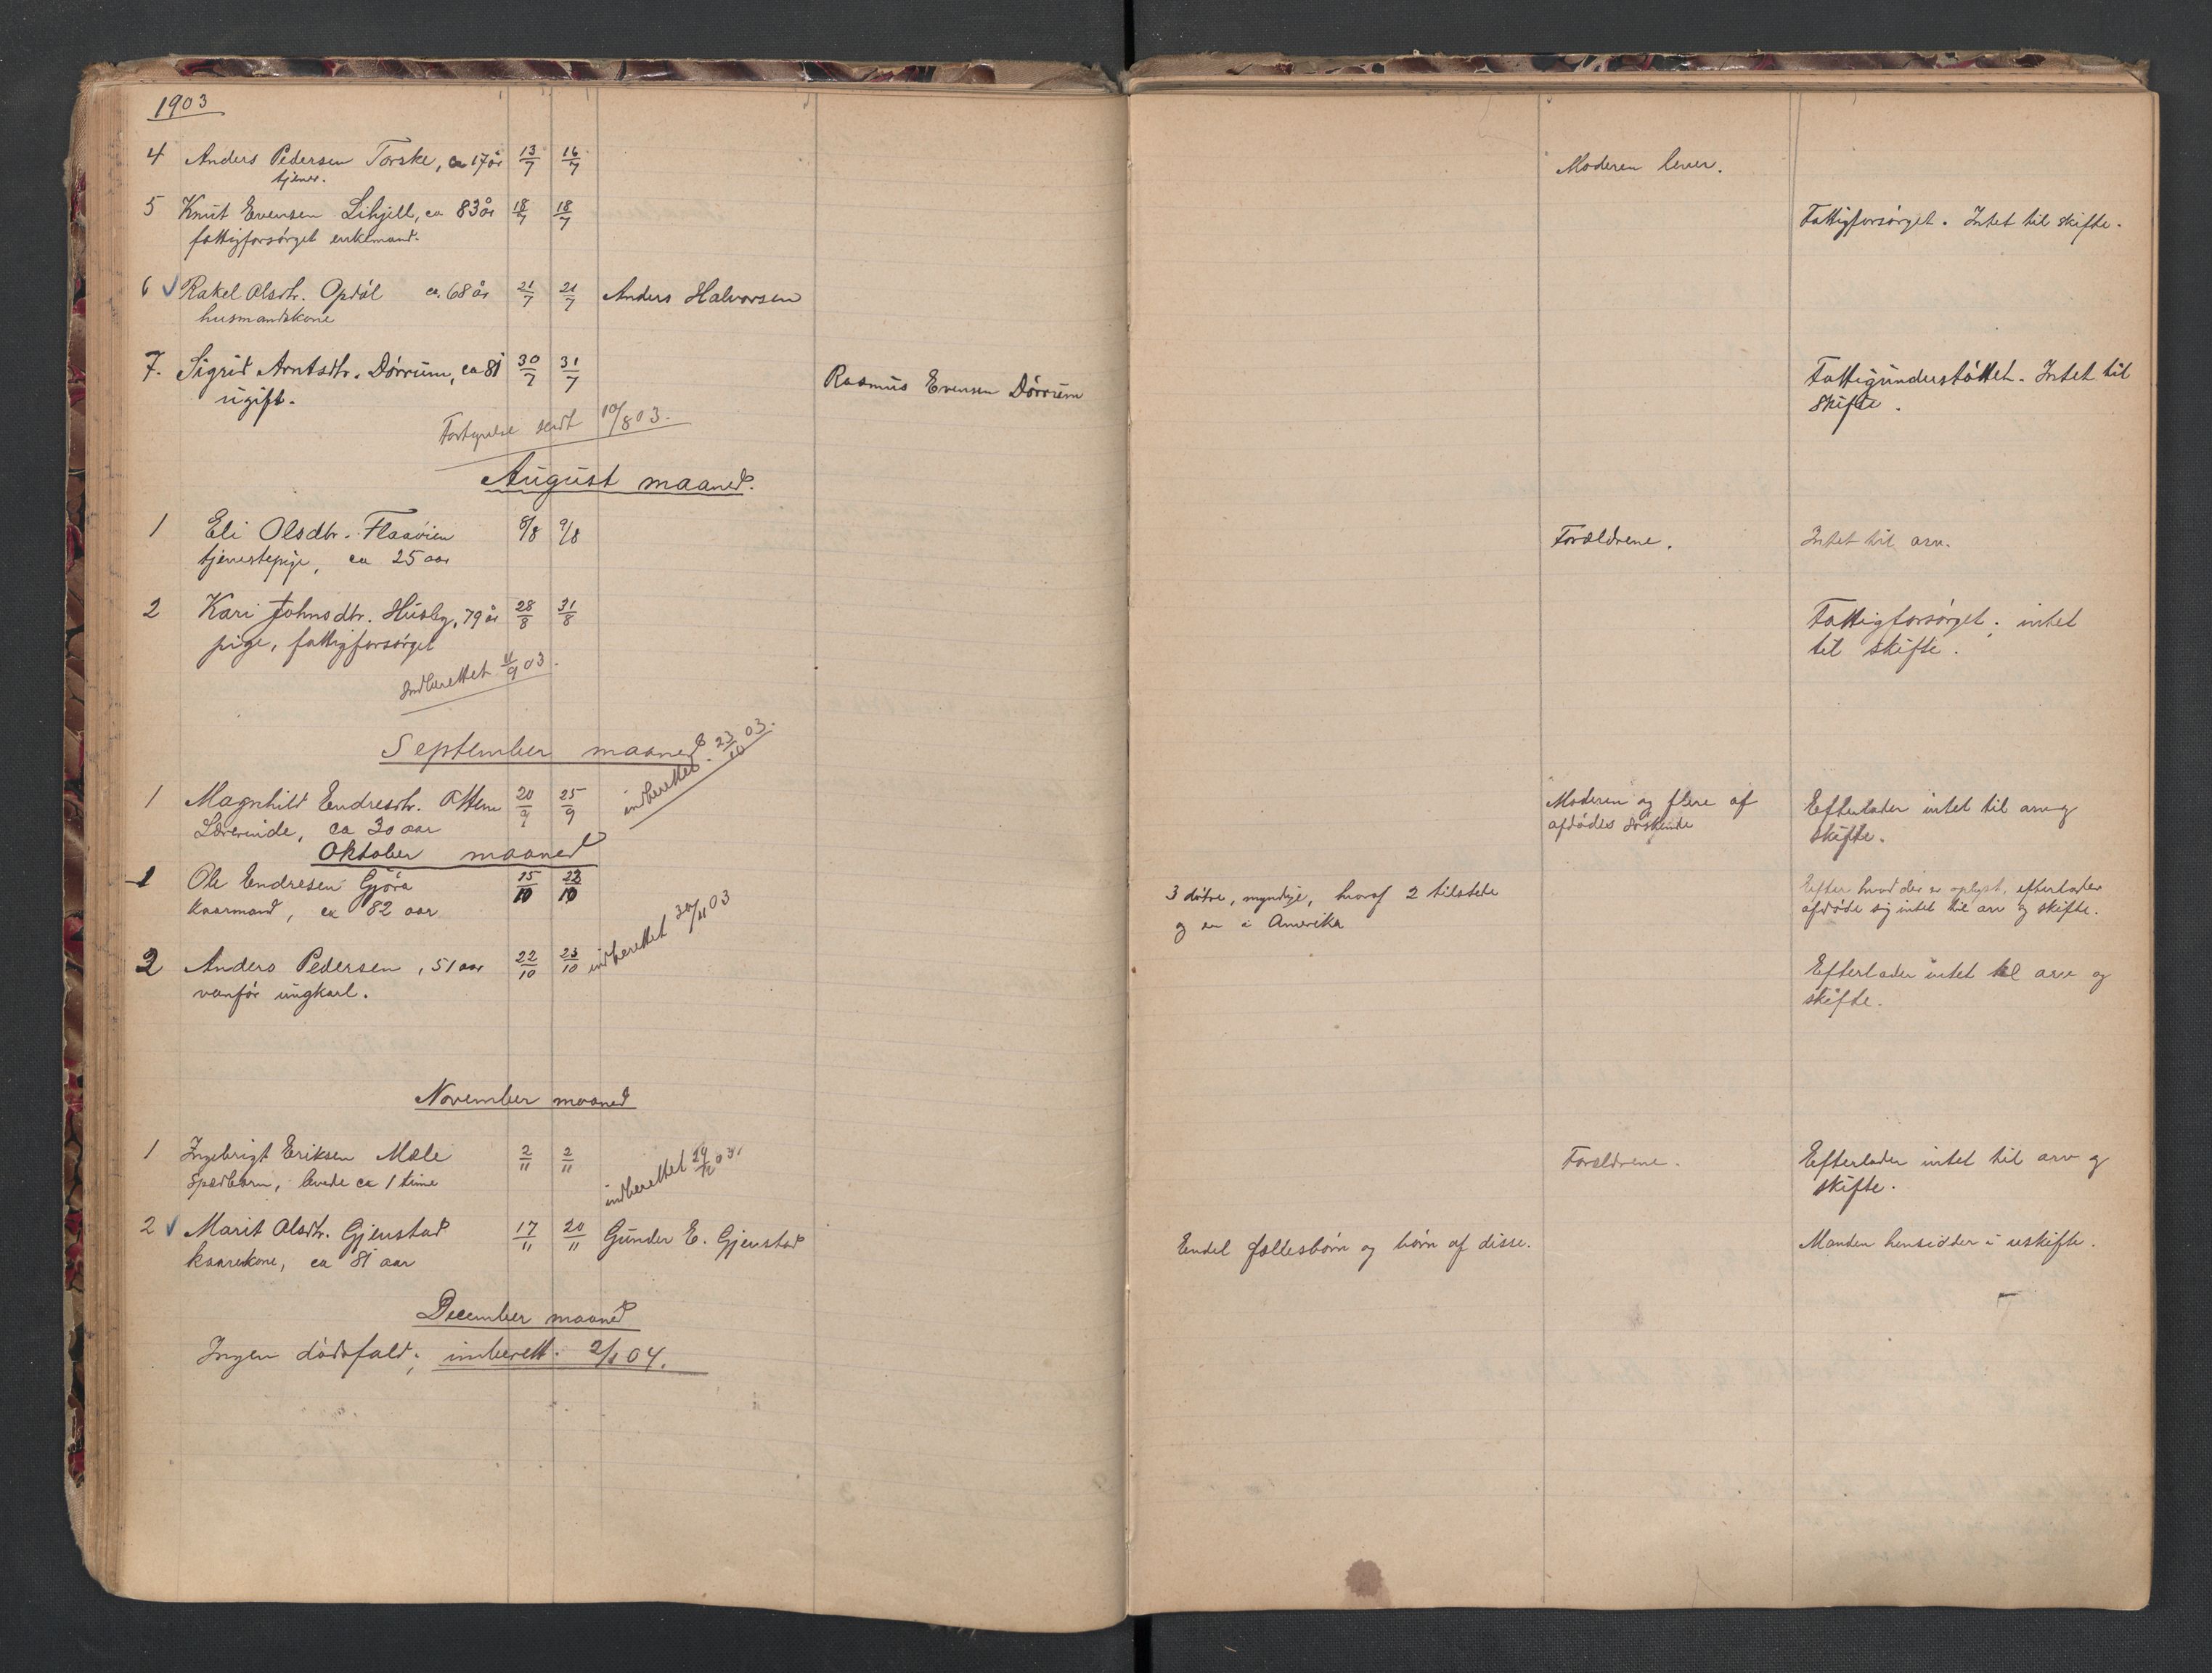 1903
4 Anders Pedersen Torske, ca 17 år 13/7 16/7 Moderen lever.
tjener.
5 Knut Evensen Lihjell, ca 83 år 18/7 18/7 Fattigforsørget. Intet til skifte.
fattigforsørget enkemand.
6 Rakel Olsdtr. Opdøl ca. 68 år 21/7 21/7 Anders Halvorsen
husmandskone
7. Sigrid Arntsdtr. Dørrum, ca 81 30/7 31/7 Rasmus Evensen Dørrum Fattigunderstøttet. Intet til
ugift. skifte.
sendt 10/8 03.
August maaned.
1 Eli Olsdtr. Flaaøien 8/8 9/8 Forældrene. Intet til arv.
tjenestepige, ca 25 aar
2 Kari Johnsdtr. Husby, 79 år 28/8 31/8 Fattigforsørget; intet
pige, fattigforsørget til skifte.
Indberettet 4/9 03.
September maaned. indberettet 23/10 03.
1 Magnhild Endresdtr. Ottem 20/9 25/9 Moderen og flere af Efterlader intet til arv og
Lærerinde, ca 30 aar afdødes søskende skifte.
Oktober maaned
1 Ole Endresen Gjøra 15/10 22/10 3 døtre, myndige, hvoraf 2 tilstede Efter hvad der er oplyst, efterlader
kaarmand, ca 82 aar og en i Amerika afdøde sig intet til arv og skifte.
2 Anders Pedersen, 51 aar 22/10 23/10 indberettet 30/11 03 Efterlader intet til arv og
vanfør ungkarl. skifte.
November maaned
1 Ingebrigt Eriksen Mæle 2/11 2/11 indberettet 03. Forældrene. Efterlader intet til arv og
spædbarn, levede ca 1 time skifte.
2 Marit Olsdtr. Gjenstad 17/11 20/11 Gunder E. Gjenstad Endel fællesbørn og børn af disse. Manden hensidder i uskifte.
kaarekone, ca 81 aar
December maaned
Ingen dødsfald; innberett. 2/1 04.